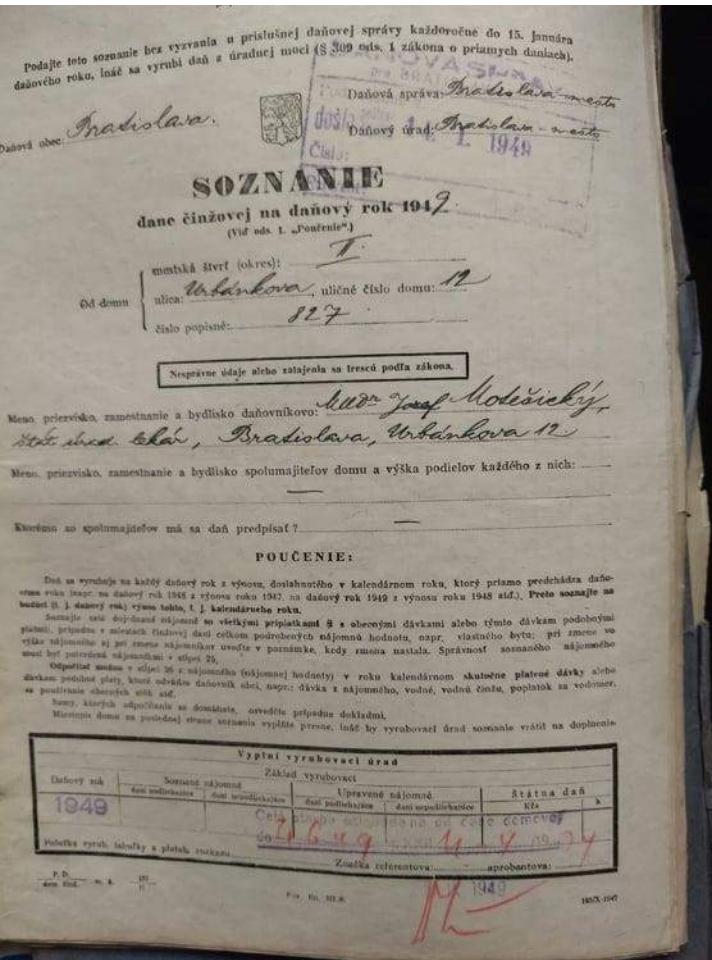 Podajte toto soznanie bez vyzvania u príslušnej daňovej správy každoročne do 15. januára
daňového roku, ináč sa vyrubí daň z úradnej moci (§ 309 ods. 1 zákona o priamych daniach).
Daňová správa: Bratislava-mesto
Daňová obec: Bratislava.
Daňový úrad: Bratislava-mesto
došlo 1. 1949
Číslo:
SOZNANIE
dane činžovej na daňový rok 1949
(Viď ods. 1. „Poučenie".)
mestská štvrť (okres): II.
Od domu
ulica: Urbánkova, uličné číslo domu: 12
číslo popisné: 827
Nesprávne údaje alebo zatajenia sa trescú podľa zákona.
Meno, priezvisko, zamestnanie a bydlisko daňovníkovo: MUDr Jozef Motešický,
štát. úrad. lekár, Bratislava, Urbánkova 12.
Meno, priezvisko, zamestnanie a bydlisko spolumajiteľov domu a výška podielov každého z nich:
—
Ktorému zo spolumajiteľov má sa daň predpísať? —
POUČENIE:
Daň sa vyrubuje na každý daňový rok z výnosu, dosiahnutého v kalendárnom roku, ktorý priamo predchádza daňo-
vému roku (napr. na daňový rok 1948 z výnosu roku 1947, na daňový rok 1949 z výnosu roku 1948 atď.). Preto soznajte na
budúci (t. j. daňový rok) výnos tohto, t. j. kalendárneho roku.
Soznajte celé dojednané nájomné so všetkými príplatkami a s obecnými dávkami alebo týmto dávkam podobnými
platmi, prípadne v miestach činžovej dani celkom podrobených nájomnú hodnotu, napr. vlastného bytu; pri zmene vo
výške nájomného aj pri zmene nájomníkov uveďte v poznámke, kedy zmena nastala. Správnosť soznaného nájomného
musí byť potvrdená nájomníkmi v stĺpci 25.
Odpočítať možno v stĺpci 26 z nájomného (nájomnej hodnoty) v roku kalendárnom skutočne platené dávky alebo
dávkam podobné platy, ktoré odvádza daňovník obci, napr.: dávka z nájomného, vodné, vodnú činžu, poplatok za vodomer,
za používanie obecných stôk atď.
Sumy, ktorých odpočítania sa domáhate, osvedčte prípadne dokladmi.
Miestopis domu na poslednej strane soznania vyplňte presne, ináč by vyrubovací úrad soznanie vrátil na doplnenie.
Vyplní vyrubovací úrad
Daňový rok
Základ vyrubovací
Soznané nájomné
Upravené nájomné
Štátna daň
dani podliehajúce
dani nepodliehajúce
dani podliehajúce
dani nepodliehajúce
Kčs
h
1949
Položka vyrub. tabuľky a platob. rozkazu
Značka referentova: aprobantova:
1949
165/X-1947